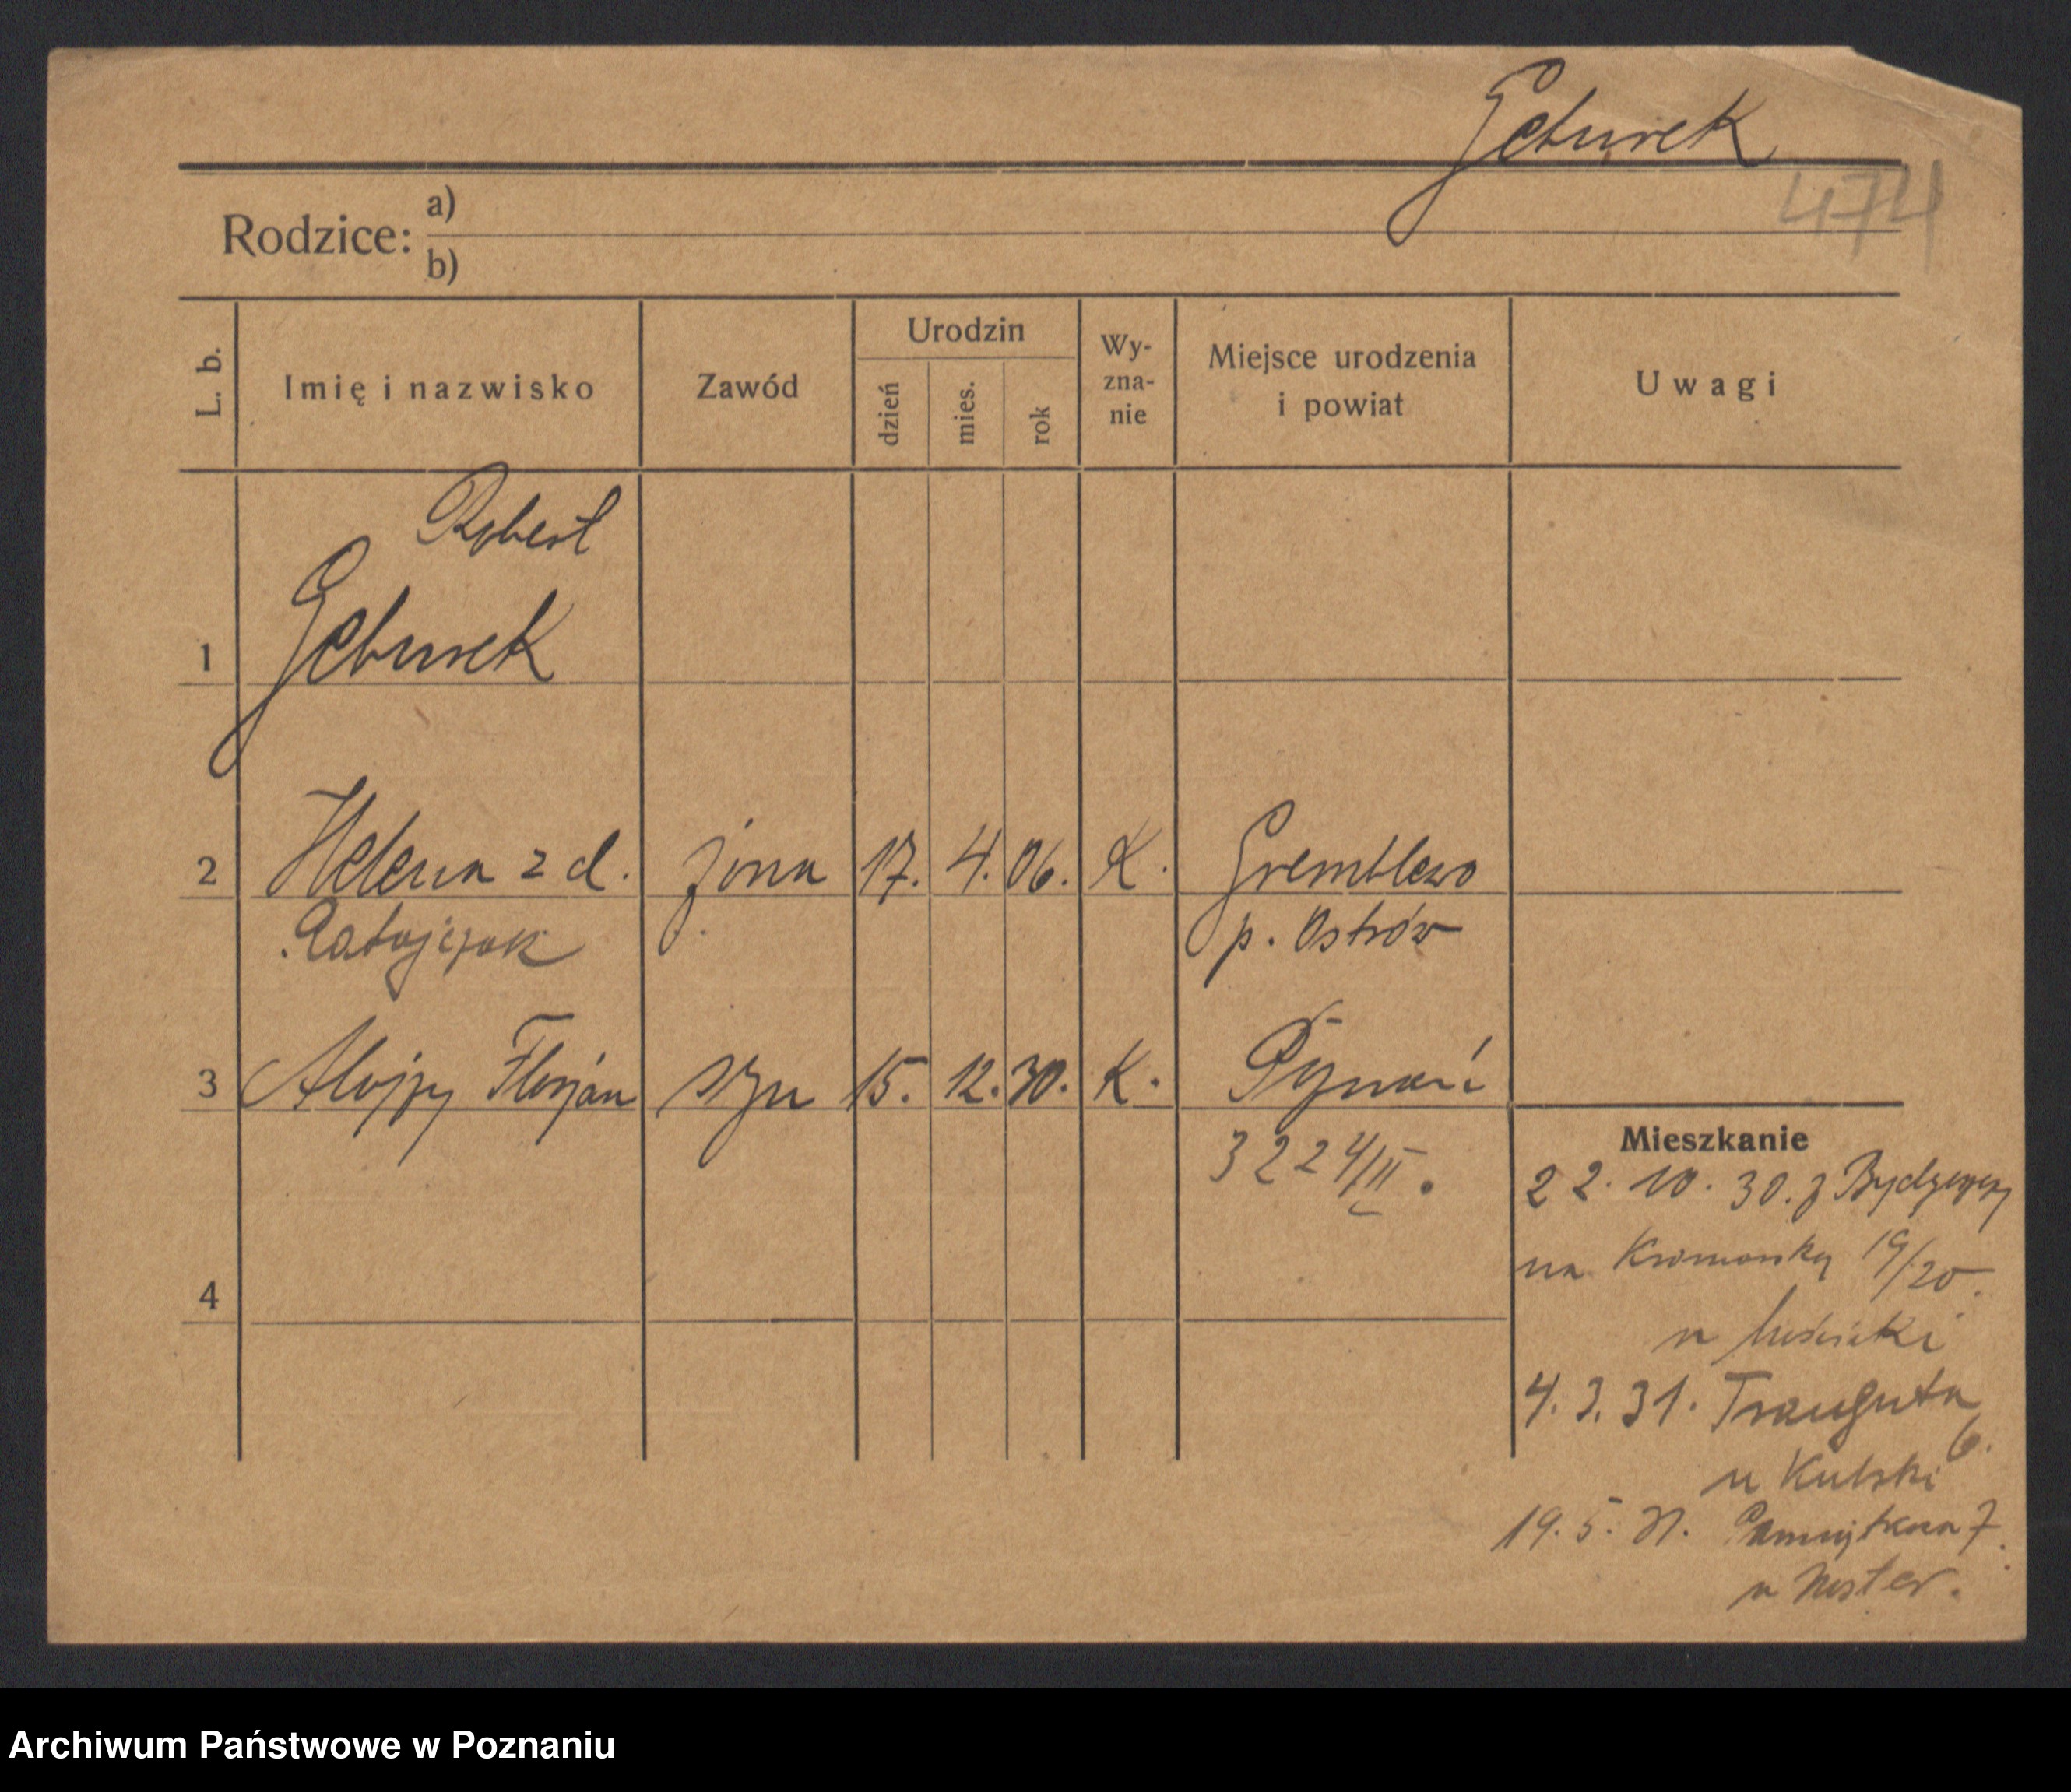 Geburek
474
Rodzice: a)
b)
L. b. Imię i nazwisko Zawód Urodzin dzień mies. rok Wy-zna-nie Miejsce urodzenia i powiat Uwagi
Robert
1 Geburek
2 Helena z d. żona 17. 4. 06. K. Gremblewo
Ratajczak p. Ostrów
3 Alojzy Florjan syn 15. 12. 30. K. Poznań
3224/II.
Mieszkanie
22. 10. 30. z Bydgoszczy
na 19/20.
u
4. 3. 31. Trauguta
6.
u Kulski
19. 5. 31. 7.
u Nester.
4
Archiwum Państwowe w Poznaniu